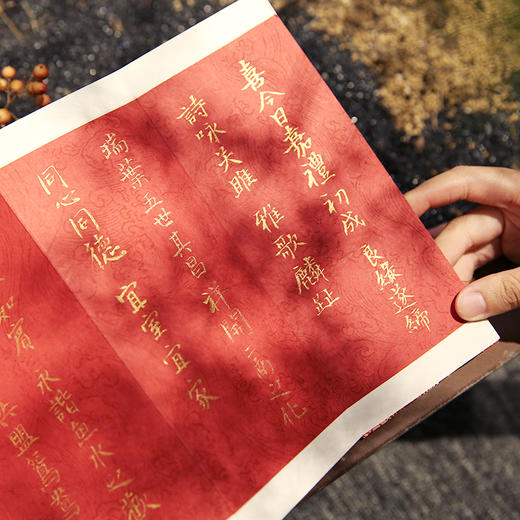 喜今日嘉禮初成 良緣遂締
詩咏关雎 雅歌麟趾
瑞葉五世其昌 祥開二南之化
同心同德 宜室宜家
如賓 永諧魚水之歡
盟鴛鴦